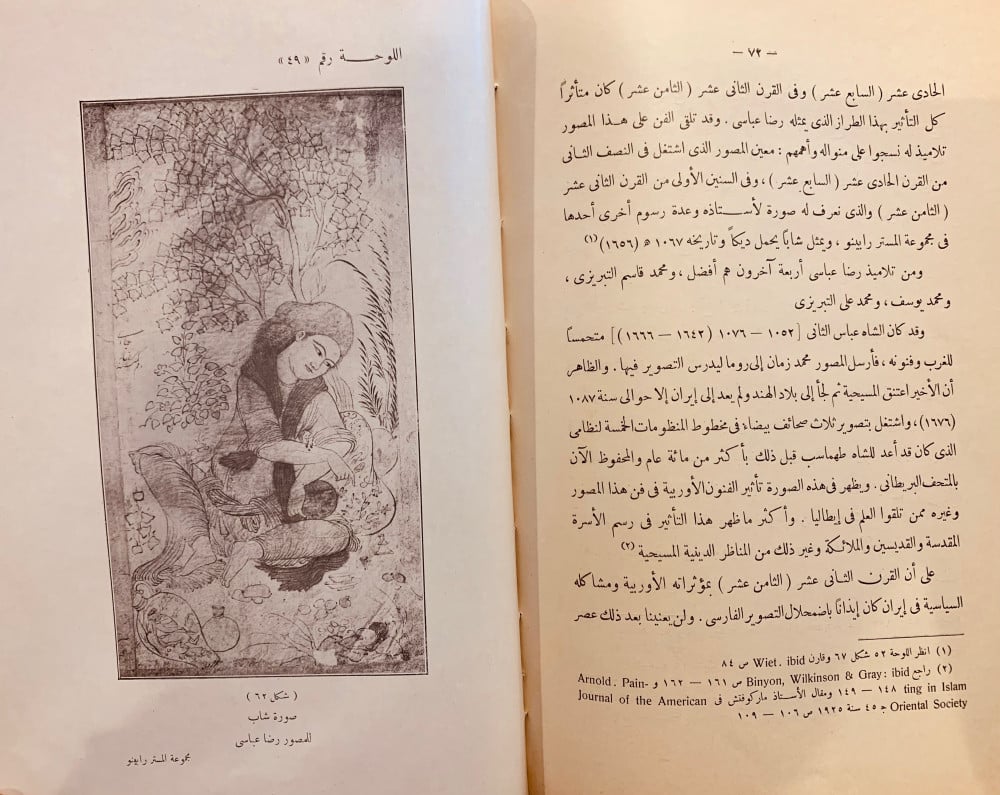 اللوحـــة رقم « ٤٩ »
( شكل ٦٢ )
صورة شاب
للمصور رضا عباسى
مجموعة المستر رابينو
— ٧٢ —
الحادى عشر ( السابع عشر ) وفى القرن الثانى عشر ( الثامن عشر ) كان متأثراً
كل التأثير بهذا الطراز الذى يمثله رضا عباسى . وقد تلقى الفن على هـذا المصور
تلاميذ له نسجوا على منواله وأهمهم : معين المصور الذى اشتغل فى النصف الثانى
من القرن الحادى عشر ( السابع عشر ) ، وفى السنين الأولى من القرن الثانى عشر
( الثامن عشر ) والذى نعرف له صورة لأستـــاذه وعدة رسوم أخرى أحدها
فى مجموعة المستر رابينو ، ويمثل شابا يحمل ديكاً وتاريخه ١٠٦٧ ه ( ١٦٥٦ ) (١)
ومن تلاميذ رضا عباسى أربعة آخرون هم أفضل ، ومحمد قاسم التبريزى ،
ومحمد يوسف ، ومحمد على التبريزى
وقد كان الشاه عباس الثانى [ ١٠٥٢ — ١٠٧٦ ( ١٦٤٢ — ١٦٦٦ ) ] متحمساً
للغرب وفنونه ، فأرسل المصور محمد زمان إلى روما ليدرس التصوير فيها . والظاهر
أن الأخير اعتنق المسيحية ثم لجأ إلى بلاد الهند ولم يعد إلى إيران إلا حوالى سنة ١٠٨٧
(١٦٧٦) ، واشتغل بتصوير ثلاث صحائف بيضاء فى مخطوط المنظومات الخمسة لنظامى
الذى كان قد أعد للشاه طهماسب قبل ذلك بأكثر من مائة عام والمحفوظ الآن
بالمتحف البريطانى . ويظهر فى هذه الصورة تأثير الفنون الأوربية فى فن هذا المصور
وغيره ممن تلقوا العلم فى إيطاليا . وأكثر ماظهر هذا التأثير فى رسم الأسرة
المقدسة والقديسين والملائكة وغير ذلك من المناظر الدينية المسيحية (٢)
على أن القرن الثانى عشر ( الثامن عشر ) بمؤثراته الأوربية ومشاكله
السياسية فى إيران كان إيذانا باضمحلال التصوير الفارسى . ولن يعنينا بعد ذلك عصر
(١) انظر اللوحة ٥٢ شكل ٦٧ وقارن Wiet. ibid ص ٨٤
(٢) راجع Binyon, Wilkinson & Gray: ibid ص ١٦١ — ١٦٢ و Arnold. Pain-
ting in Islam ١٤٨ — ١٤٩ ومقال الأستاذ ماركوفتش فى Journal of the American
Oriental Society ج ٤٥ سنة ١٩٢٥ ص ١٠٦ — ١٠٩